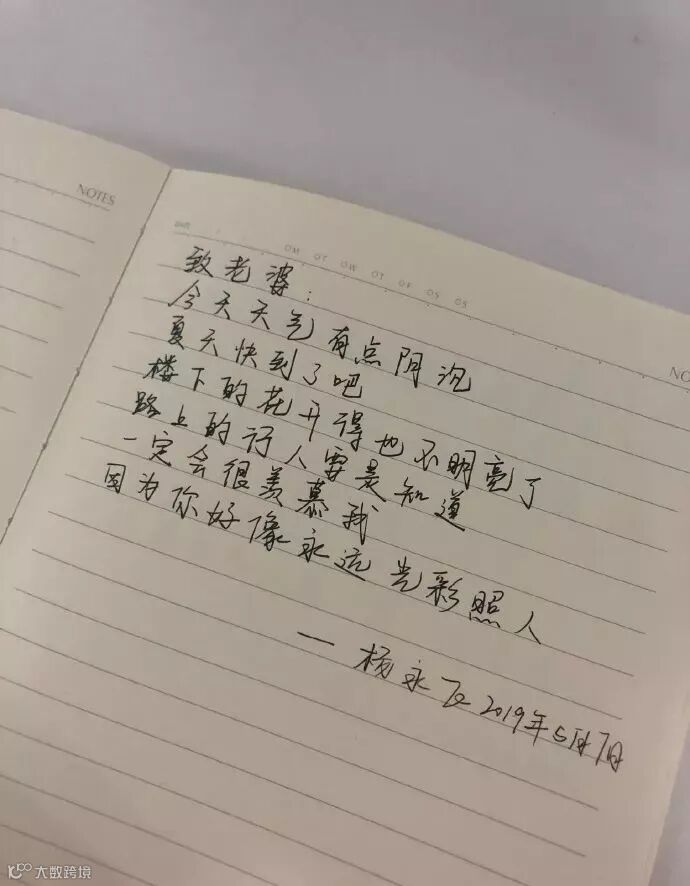 NOTES
致老婆：
今天天气有点阴沉
夏天快到了吧
楼下的花开得也不明亮了
路上的行人要是知道
一定会很羡慕我
因为你好像永远光彩照人
— 杨永 2019年5月7日
NO
大数跨境